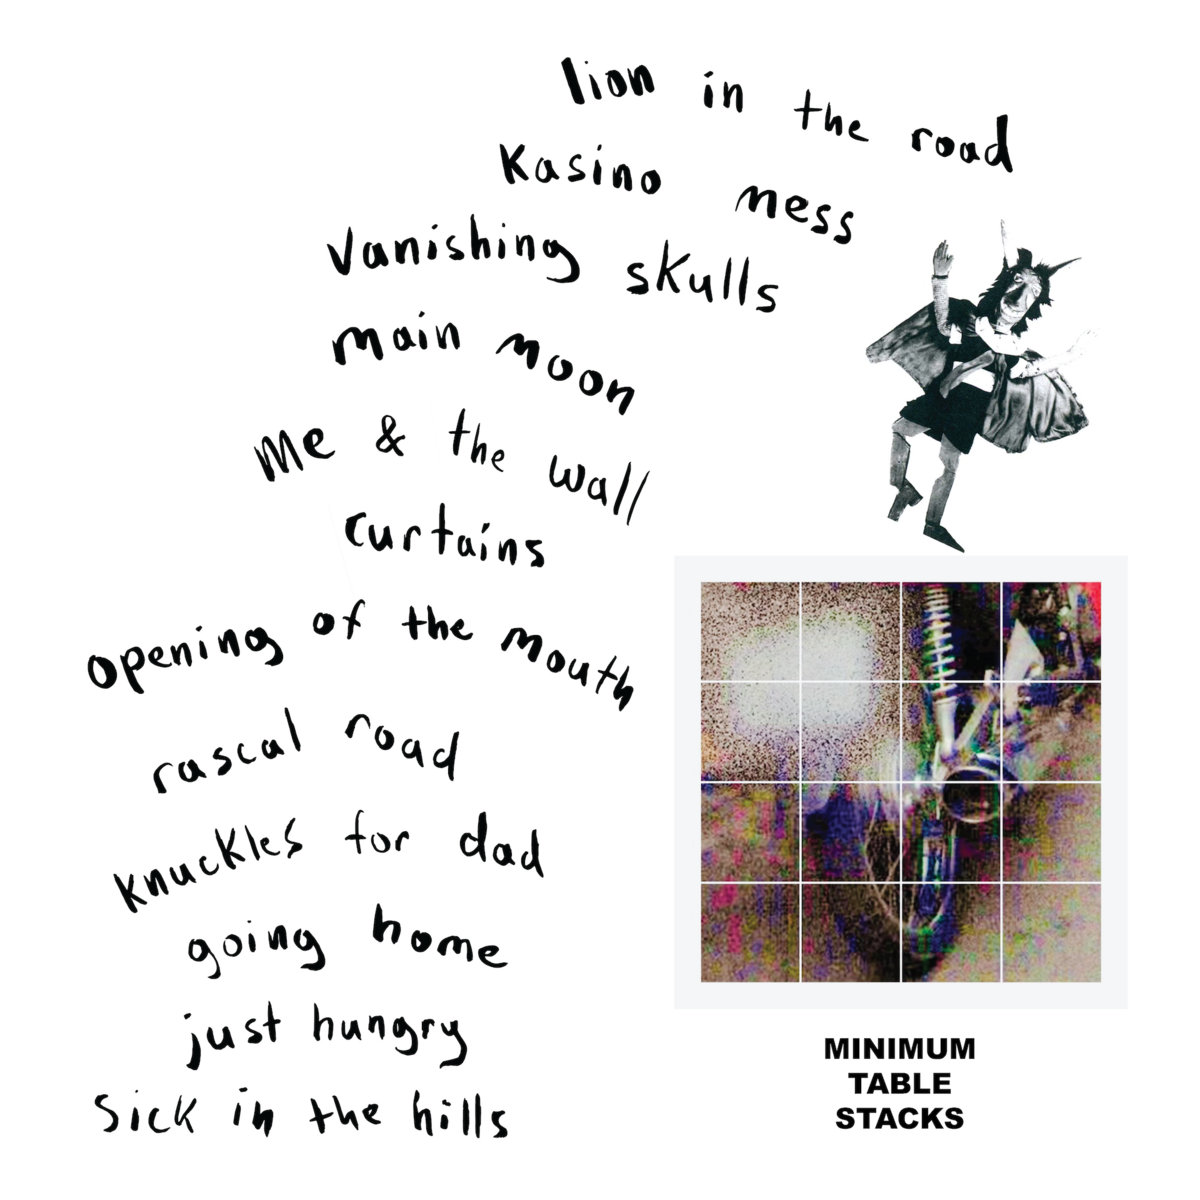 lion in the road
Kasino mess
Vanishing skulls
main moon
me & the wall
curtains
opening of the mouth
rascal road
knuckles for dad
going home
just hungry
Sick in the hills
MINIMUM
TABLE
STACKS